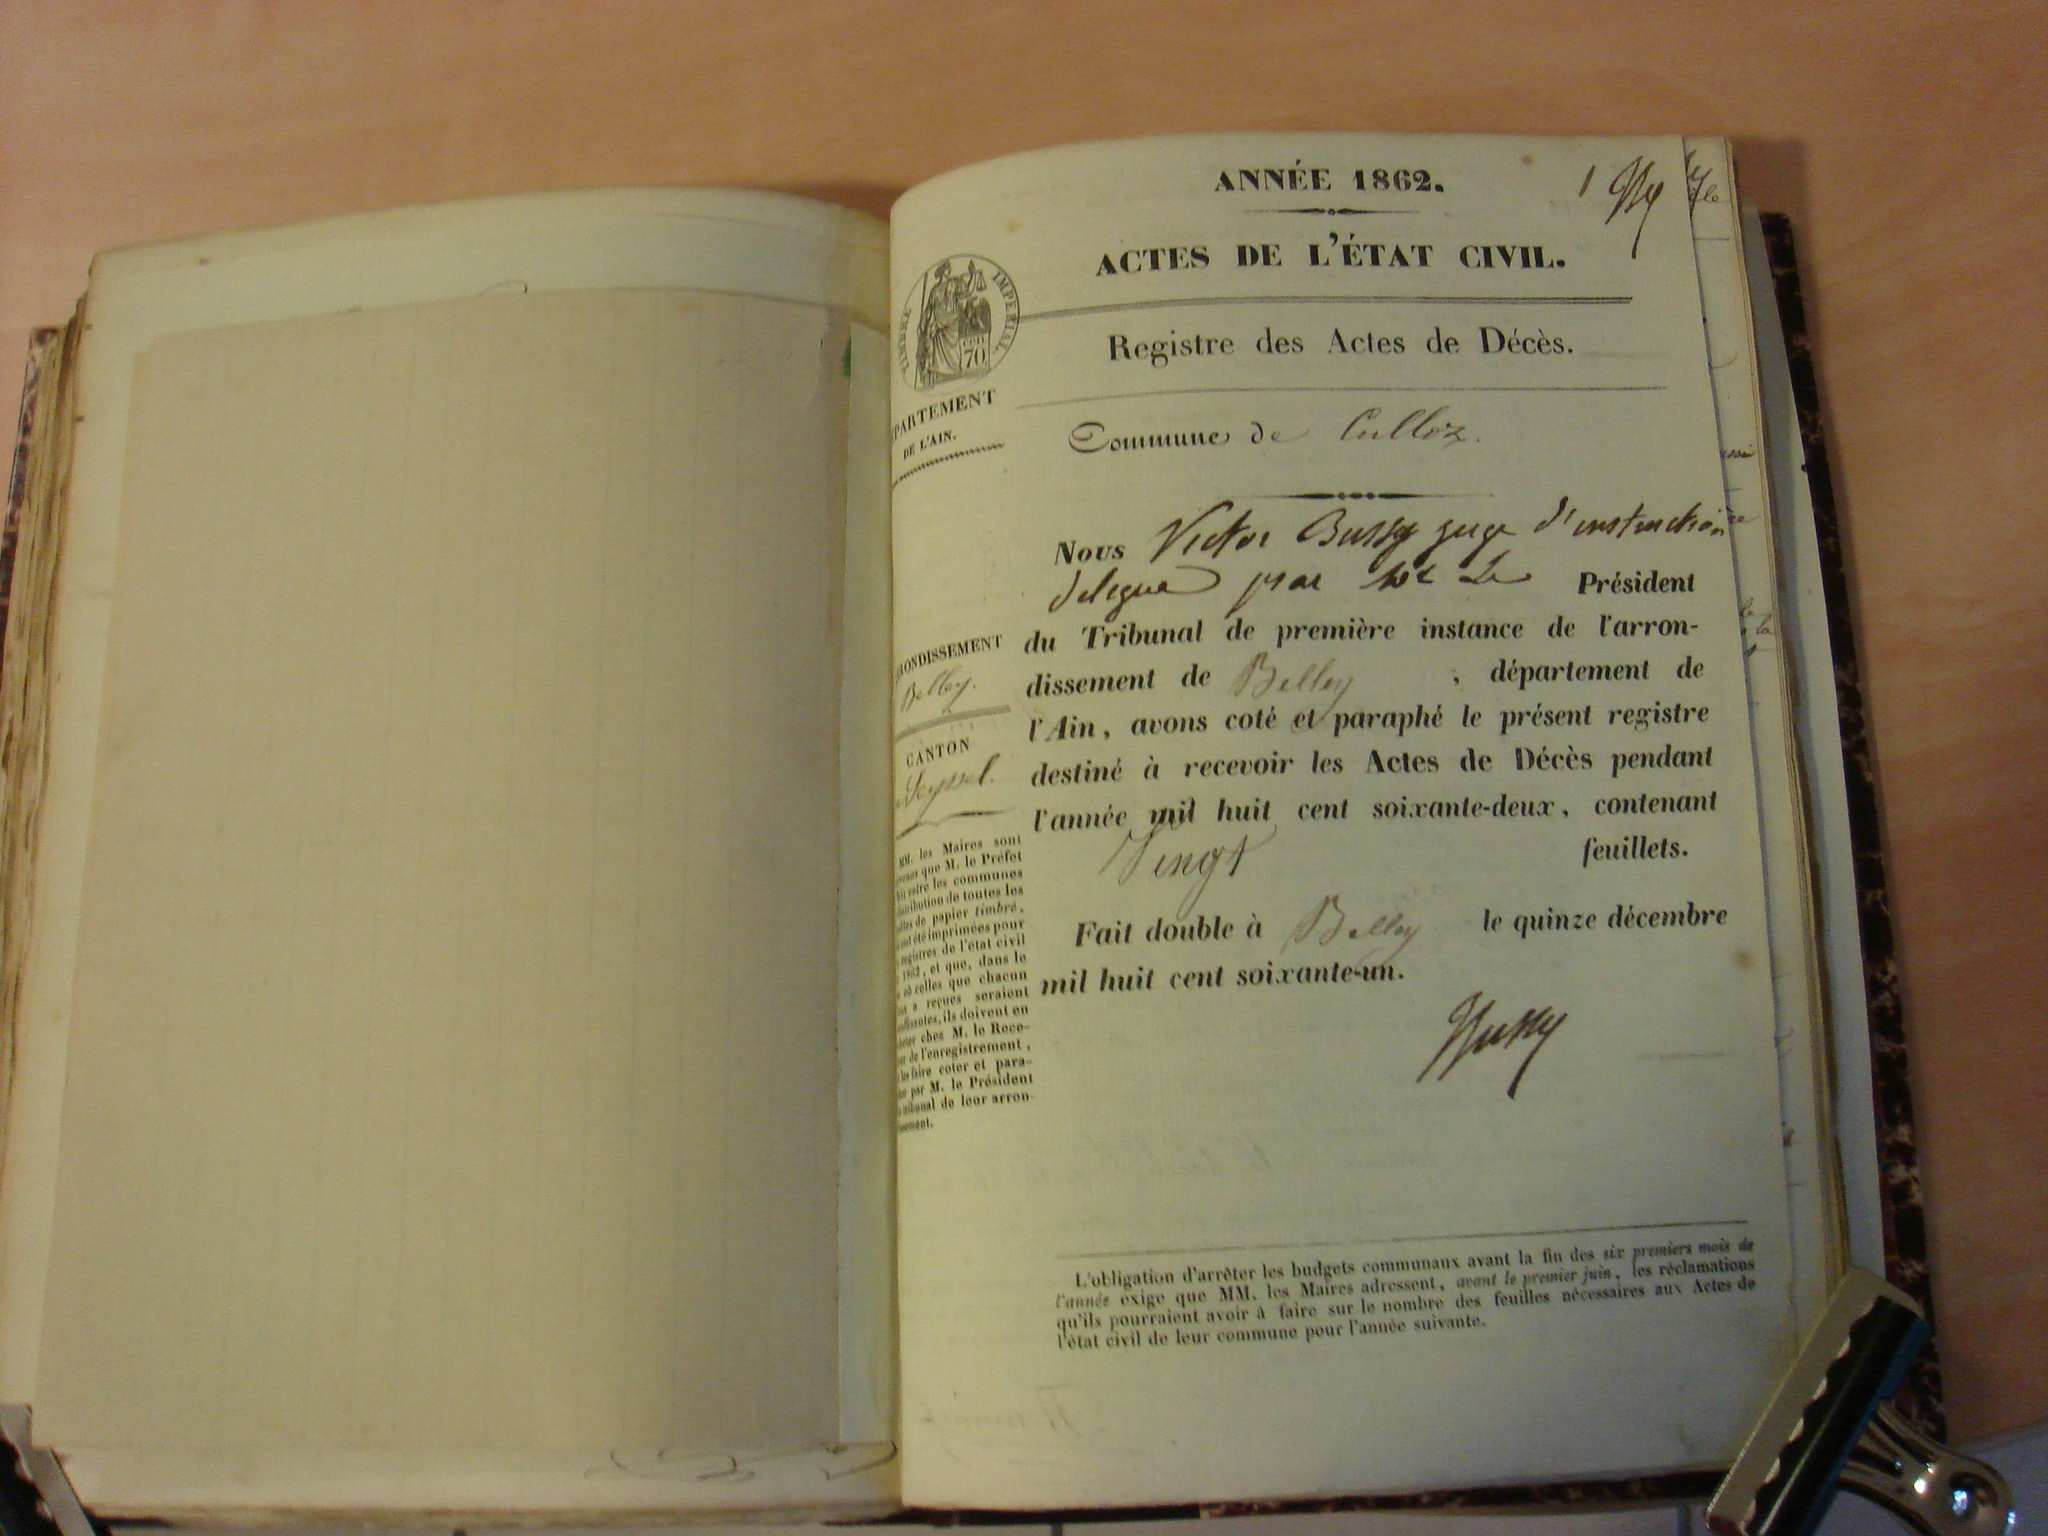 ANNÉE 1862.
1
ACTES DE L'ÉTAT CIVIL.
TIMBRE IMPÉRIAL
70
Registre des Actes de Décès.
PARTEMENT
DE L'AIN.
Commune de Culloz.
Nous Victor Bussy juge d'instruction
délégué par Mr Le Président
du Tribunal de première instance de l'arron-
dissement de Belley, département de
l'Ain, avons coté et paraphé le présent registre
destiné à recevoir les Actes de Décès pendant
l'année mil huit cent soixante-deux, contenant
Vingt feuillets.
Fait double à Belley le quinze décembre
mil huit cent soixante-un.
Bussy
RONDISSEMENT
Belley.
CANTON
Seyssel.
MM. les Maires sont
que M. le Préfet
entre les communes
de toutes les
de papier timbré,
ont été imprimées pour
registres de l'état civil
1862, et que, dans le
où celles que chacun
a reçues seraient
ils doivent en
chez M. le Rece-
de l'enregistrement,
les faire coter et para-
par M. le Président
tribunal de leur arron-
L'obligation d'arrêter les budgets communaux avant la fin des six premiers mois de
l'année exige que MM. les Maires adressent, avant le premier juin, les réclamations
qu'ils pourraient avoir à faire sur le nombre des feuilles nécessaires aux Actes de
l'état civil de leur commune pour l'année suivante.